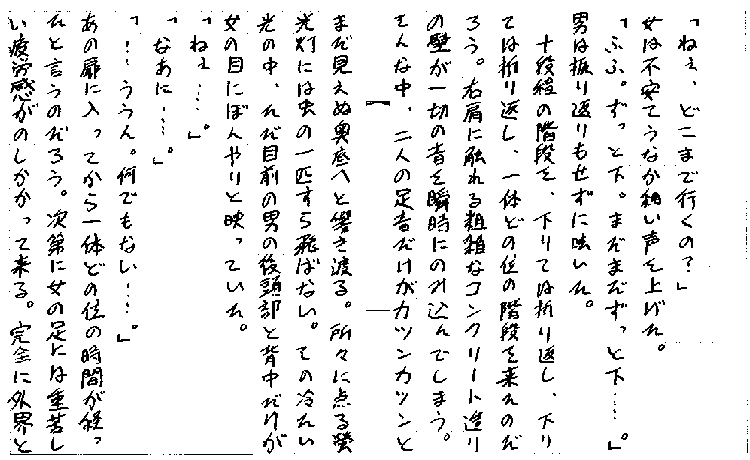 「ねぇ、どこまで行くの？」
女は不安でうなか細い声を上げた。
「ふふ。ずっと下。まだまだずっと下……」。
男は振り返りもせずに呟いた。
十段程の階段を、下りては折り返し、下り
ては折り返し、一体どの位の階段を来たのだ
ろう。右肩に触れる粗雑なコンクリート造り
の壁が一切の音を瞬時にのみ込んでしまう。
そんな中、二人の足音だけがカツンカツンと
まだ見えぬ奥底へと響き渡る。所々に点る螢
光灯には虫の一匹すら飛ばない。その冷たい
光の中、ただ目前の男の後頭部と背中だけが
女の目にぼんやりと映っていた。
「ねぇ……」。
「なあに……」。
「！…ううん。何でもない……」。
あの扉に入ってから一体どの位の時間が経っ
たと言うのだろう。次第に女の足には重苦し
い疲労感がのしかかって来る。完全に外界と